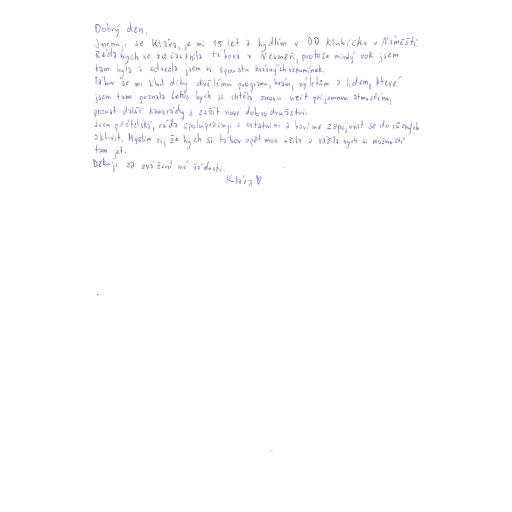 Dobrý den,
jmenuji se Klára, je mi 15 let a bydlím v DD Klubíčko v Náměšti.
Ráda bych se zúčastnila tábora v Nesměři, protože minulý rok jsem
tam byla a odvezla jsem si spoustu krásných vzpomínek.
Tábor se mi líbil díky skvělému programu, hrám, výletům a lidem, které
jsem tam poznala. Letos bych si chtěla znovu užít příjemnou atmosféru,
poznat další kamarády a zažít nové dobrodružství.
Jsem přátelská, ráda spolupracuji s ostatními a baví mě zapojovat se do různých
aktivit. Myslím si, že bych si tábor opět moc užila a vážila bych si možnosti
tam jet.
Děkuji za zvážení mé žádosti.
Klára ♡